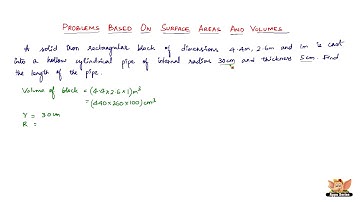 PROBLEMS BASED ON SURFACE AREAS AND VOLUMES
A solid Iron rectangular block of dimensions 4.4m, 2.6m and 1m is cast
into a hollow cylindrical pipe of internal radius 30cm and thickness 5cm. Find
the length of the pipe.
Volume of block = (4.4 x 2.6 x 1) m³
= (440 x 260 x 100) cm³
r = 30cm
R =